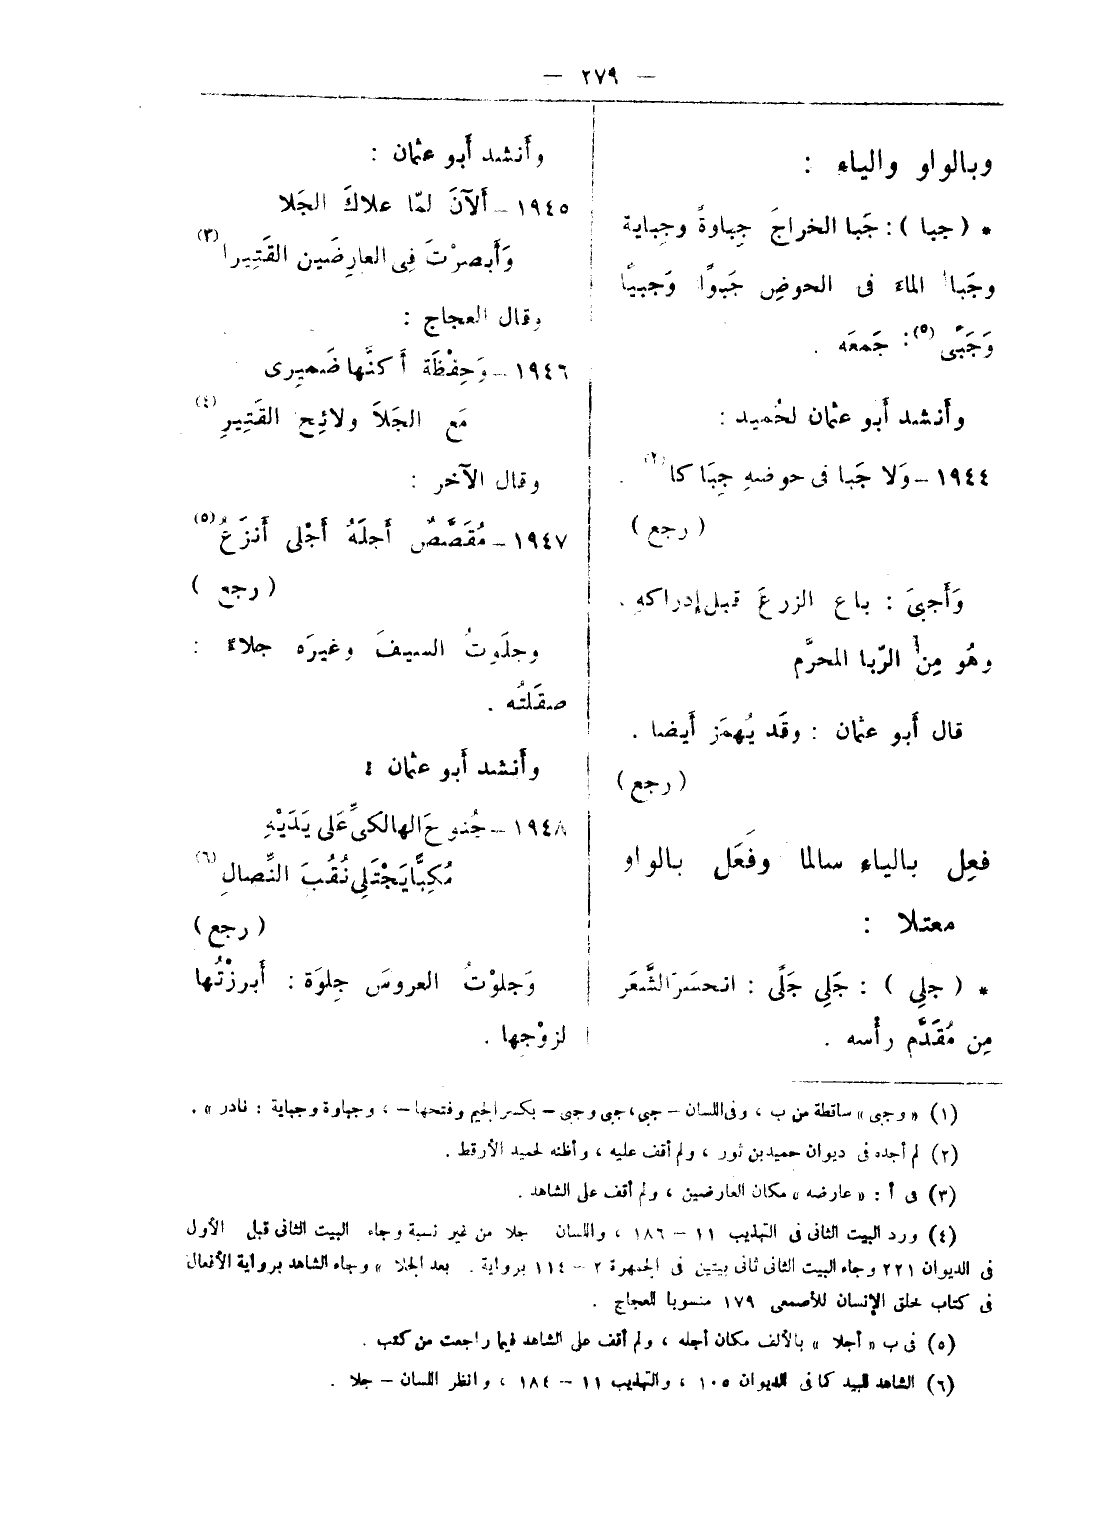 — ٢٧٩ —
وبالواو والياء :
* ( جبا ) : جَبا الخراجَ جِباوةً وجِباية
وجَبا الماءَ فى الحوضِ جَبوًا وَجبيًا
وَجَبًى (٥) : جَمعَه .
وأَنشد أَبو عثمان لحُميد :
١٩٤٤ – وَلا جَبا فى حوضهِ جِبَاكا (٢) .
( رجع )
وَأَجبىَ : باع الزرعَ قبل إدراكهِ .
وهُو مِن الرّبا المحرَّم
قال أَبو عثمان : وقَد يُهمَز أَيضا .
( رجع )
فعِل بالياء سالما وفَعَل بالواو
معتلا :
* ( جلى ) : جَلِى جَلًى : انحسَرَ الشَّعَر
مِن مُقَدَّم رأْسه .
وأَنشد أَبو عثمان :
١٩٤٥ – أَلآنَ لمّا علاكَ الجَلا
وَأَبصرْتَ فِى العارِضَين القَتِيرا (٣)
وقال العجاج :
١٩٤٦ – وَحِفْظَة أَكنَّها ضَمِيرى
مَع الجَلاَ ولائِح القَتِيرِ (٤)
وقال الآخر :
١٩٤٧ – مُقَصَّصٌ أَجلَهُ أَجْلى أَنزَعُ (٥)
( رجع )
وجلَوتُ السيفَ وغيرَه جلاءً :
صقَلتُه .
وأَنشد أَبو عثمان :
١٩٤٨ – جُنوحَ الهالكىِّ عَلى يَدَيْهِ
مُكِبًّا يَجْتَلِى نُقُبَ النِّصالِ (٦)
( رجع )
وَجلوْتُ العروسَ جِلوَة : أَبرزْتُها
لزوْجِها .
(١) « وجبى » ساقطة من ب ، وفى اللسان – جبى ، جبى وجبى – بكسر الجيم وفتحها – ، وجباوة وجباية : نادر » .
(٢) لم أجده فى ديوان حميد بن ثور ، ولم أقف عليه ، وأظنه لحميد الأرقط .
(٣) فى أ : « عارضه » مكان العارضين ، ولم أقف على الشاهد .
(٤) ورد البيت الثانى فى التهذيب ١١ – ١٨٦ ، واللسان جلا من غير نسبة وجاء البيت الثانى قبل الأول
فى الديوان ٢٢١ وجاء البيت الثانى ثانى بيتين فى الجمهرة ٢ – ١١٤ برواية . بعد الجلا » وجاء الشاهد برواية الأفعال
فى كتاب خلق الإنسان للأصمعى ١٧٩ منسوبا للعجاج .
(٥) فى ب « أجلا » بالألف مكان أجله ، ولم أقف على الشاهد فيما راجعت من كتب .
(٦) الشاهد للبيد كما فى الديوان ١٠٥ ، والتهذيب ١١ – ١٨٤ ، وانظر اللسان – جلا .